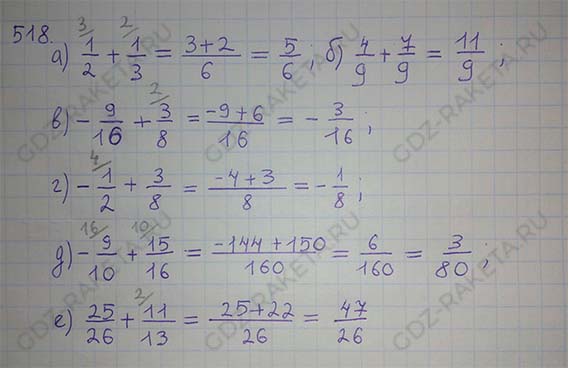 518. а) 3/ 1/2 + 2/ 1/3 = (3+2)/6 = 5/6 ; б) 4/9 + 7/9 = 11/9 ;
в) - 9/16 + 2/ 3/8 = (-9+6)/16 = - 3/16 ;
г) - 4/ 1/2 + 3/8 = (-4+3)/8 = - 1/8 ;
д) - 16/ 9/10 + 10/ 15/16 = (-144+150)/160 = 6/160 = 3/80 ;
е) 25/26 + 2/ 11/13 = (25+22)/26 = 47/26
GDZ-RAKETA.RU
GDZ-RAKETA.RU
GDZ-RAKETA.RU
GDZ-RAKETA.RU